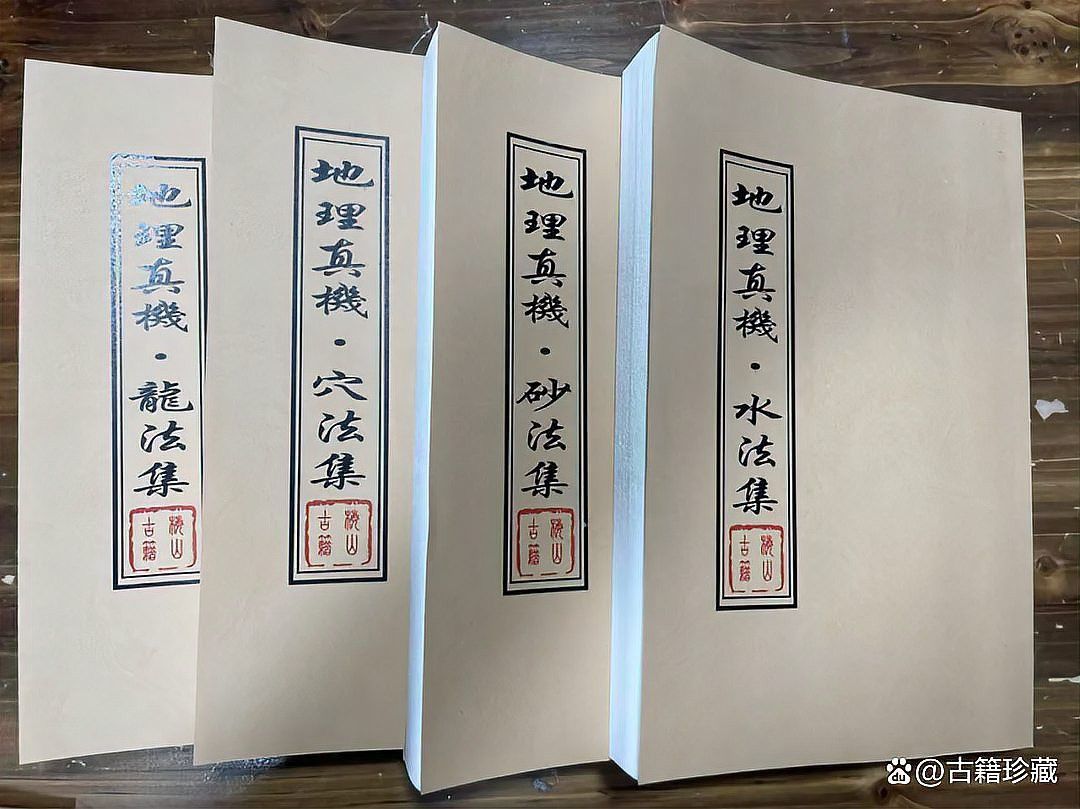 地理真機・龍法集
地理真機・穴法集
地理真機・砂法集
地理真機・水法集
山
古籍
山
古籍
山
古籍
山
古籍
@古籍珍藏